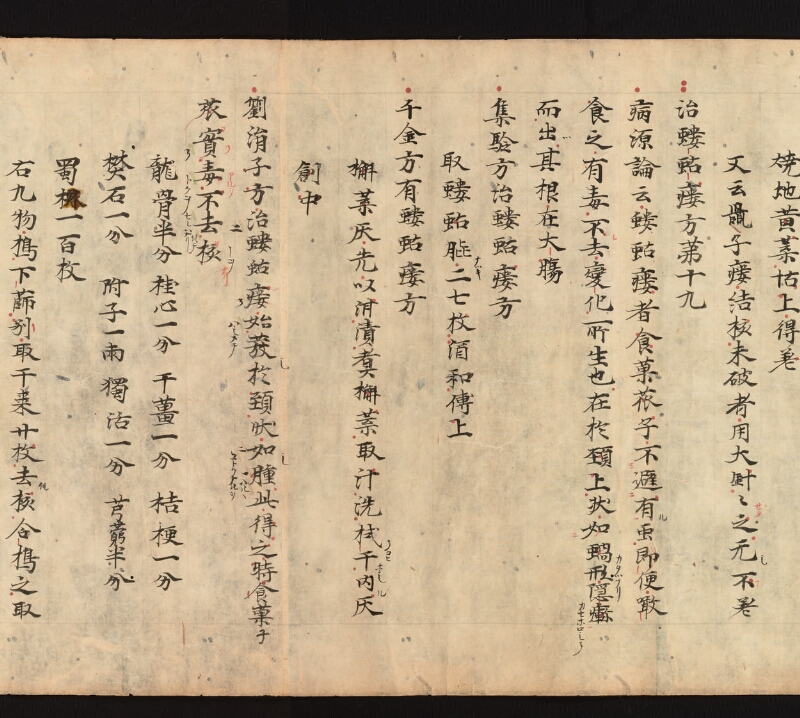 焼地黄葉怗上得差
又云鼠子瘻結核未破者用大針々之无不差
治螻蛄瘻方第十九
病源論云螻蛄瘻者食菓蓏子不避有虫即便噉
食之有毒不去變化所生也在於頚上状如蝸形隠𤺋
而出其根在大腸
集驗方治螻蛄瘻方
取螻蛄脳二七枚酒和傅上
千金方有螻蛄瘻方
槲葉灰先以泔漬煮槲葉取汁洗拭干内灰
創中
劉涓子方治螻蛄瘻始發於頚状如腫此得之時食菓子
蓏實毒不去核
龍骨半分 桂心一分 干薑一分 桔梗一分
樊石一分 附子一兩 獨活一分 芎藭半分
蜀椒一百枚
右九物搗下篩別取干棗廿枚去核合搗之取